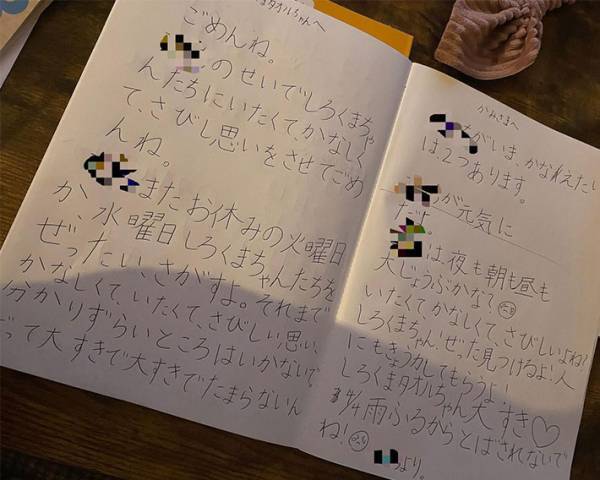 まタオルちゃんへ
ごめんね。
のせいでしろくまちゃ
んたちにいたくて、かなしく
て、さびし思いをさせてごめ
んね。
またお休みの火曜日
か、水曜日しろくまちゃんたちを
ぜったい、さがすよ。それまで
かなしくて、いたくて、さびしい思い、
分かりずらいところはいかないで
って大すきで大すきでたまらないん
かみさまへ
がいま、かなえたい
は、2つあります。
が元気に
だよ
は、夜も朝も昼も
大じょうぶかなて
いたくて、かなしくて、さびしいよね?
しろくまちゃん、ぜった見つけるよ!人
にもきょうかしてもらうよ!
しろくまタオルちゃん大すき♡
8/4雨ふるからとばされないで
ね!
より。